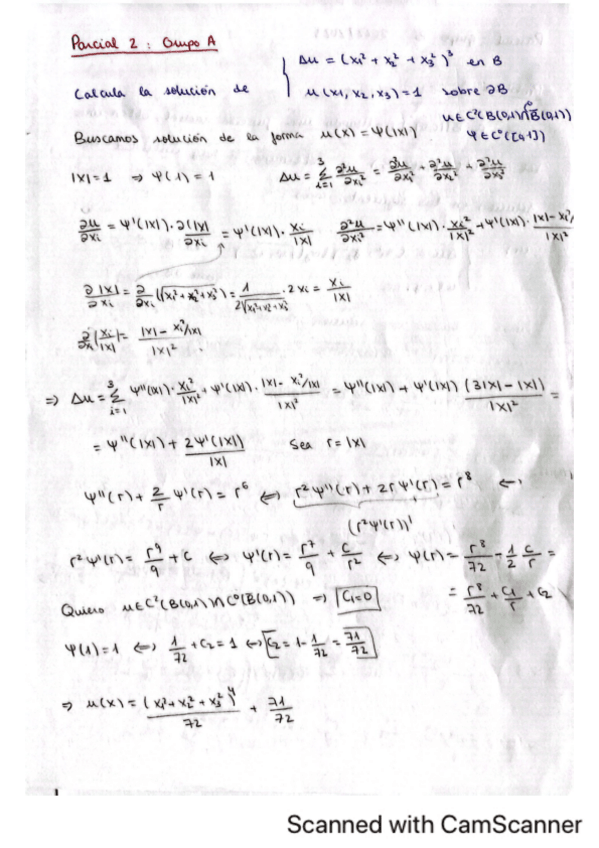 Parcial 2 : Grupo A
Calcula la solución de { Δu = (x₁² + x₂² + x₃²)³ en B
u(x₁, x₂, x₃) = 1 sobre ∂B
u ∈ C²(B(0,1)) ∩ C⁰(B̄(0,1))
Buscamos solución de la forma u(x) = Ψ(|x|) Ψ ∈ C²([0,1])
|x| = 1 ⇒ Ψ(1) = 1 Δu = Σᵢ₌₁³ ∂²u/∂xᵢ² = ∂²u/∂x₁² + ∂²u/∂x₂² + ∂²u/∂x₃²
∂u/∂xᵢ = Ψ'(|x|) · ∂|x|/∂xᵢ = Ψ'(|x|) · xᵢ/|x| ∂²u/∂xᵢ² = Ψ''(|x|) · xᵢ²/|x|² + Ψ'(|x|) · |x| - xᵢ²/|x|²
∂|x|/∂xᵢ = ∂/∂xᵢ (√x₁² + x₂² + x₃²) = 1/2√x₁² + x₂² + x₃² · 2xᵢ = xᵢ/|x|
∂/∂xᵢ (xᵢ/|x|) = |x| - xᵢ²/|x| / |x|²
⇒ Δu = Σᵢ₌₁³ Ψ''(|x|) · xᵢ²/|x|² + Ψ'(|x|) · |x| - xᵢ²/|x| / |x|² = Ψ''(|x|) + Ψ'(|x|) (3|x| - |x|)/|x|² =
= Ψ''(|x|) + 2Ψ'(|x|)/|x| Sea r = |x|
Ψ''(r) + 2/r Ψ'(r) = r⁶ ⇔ r²Ψ''(r) + 2rΨ'(r) = r⁸ ⇔
(r²Ψ'(r))'
r²Ψ'(r) = r⁹/9 + C ⇔ Ψ'(r) = r⁷/9 + C/r² ⇔ Ψ(r) = r⁸/72 - 1/2 C/r =
= r⁸/72 + C₁/r + C₂
Quiero u ∈ C²(B(0,1)) ∩ C⁰(B(0,1)) ⇒ C₁ = 0
Ψ(1) = 1 ⇔ 1/72 + C₂ = 1 ⇔ C₂ = 1 - 1/72 = 71/72
⇒ u(x) = (x₁² + x₂² + x₃²)⁴/72 + 71/72
Scanned with CamScanner